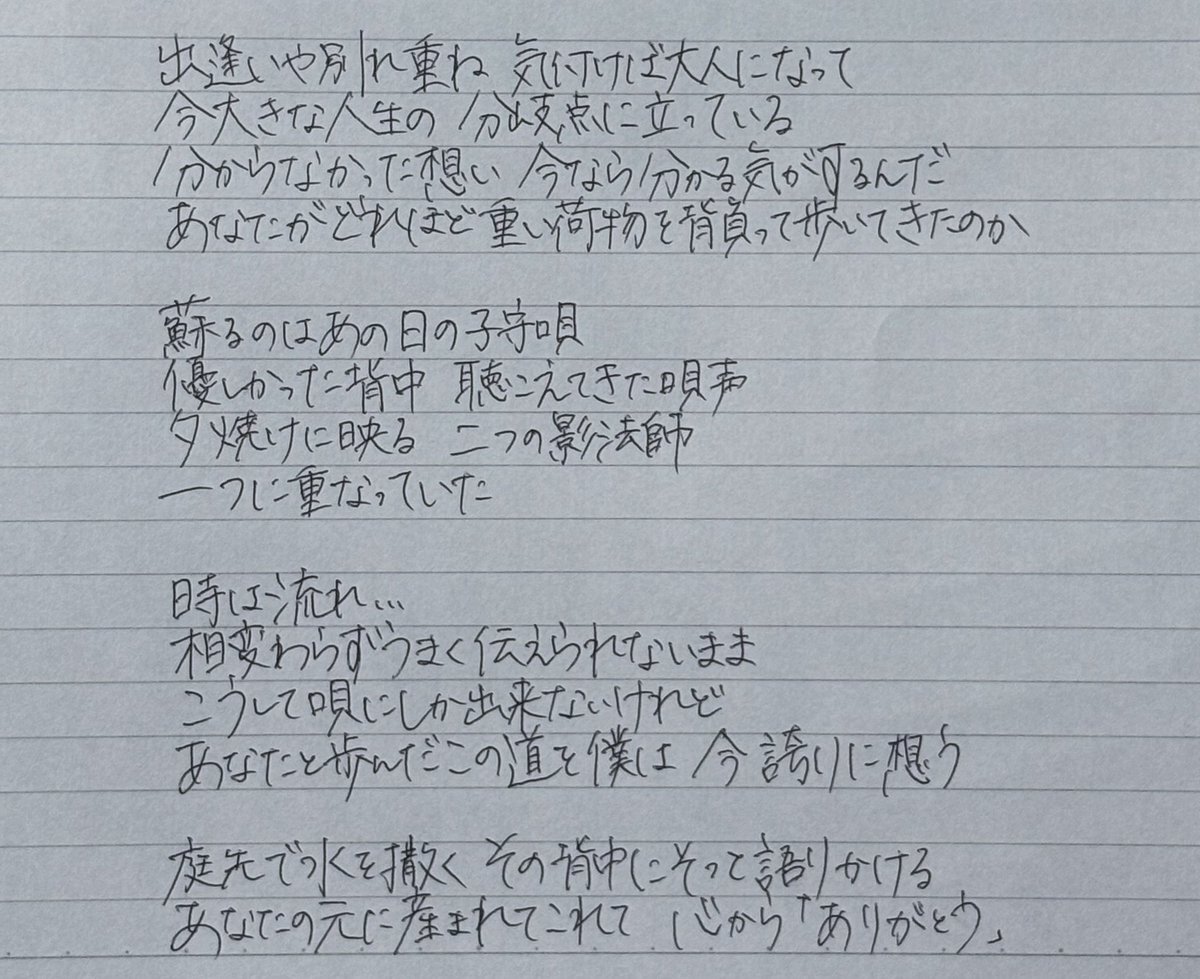 出逢いや別れ重ね 気付けば大人になって
今大きな人生の 分岐点に立っている
分からなかった想い 今なら分かる気がするんだ
あなたがどれほど重い荷物を背負って歩いてきたのか
蘇るのはあの日の子守唄
優しかった背中 聴こえてきた唄声
夕焼けに映る 二つの影法師
一つに重なっていた
時は流れ...
相変わらずうまく伝えられないまま
こうして唄にしか出来ないけれど
あなたと歩んだこの道を僕は 今誇りに想う
庭先で水を撒く その背中にそっと語りかける
あなたの元に産まれてこれて 心から「ありがとう」